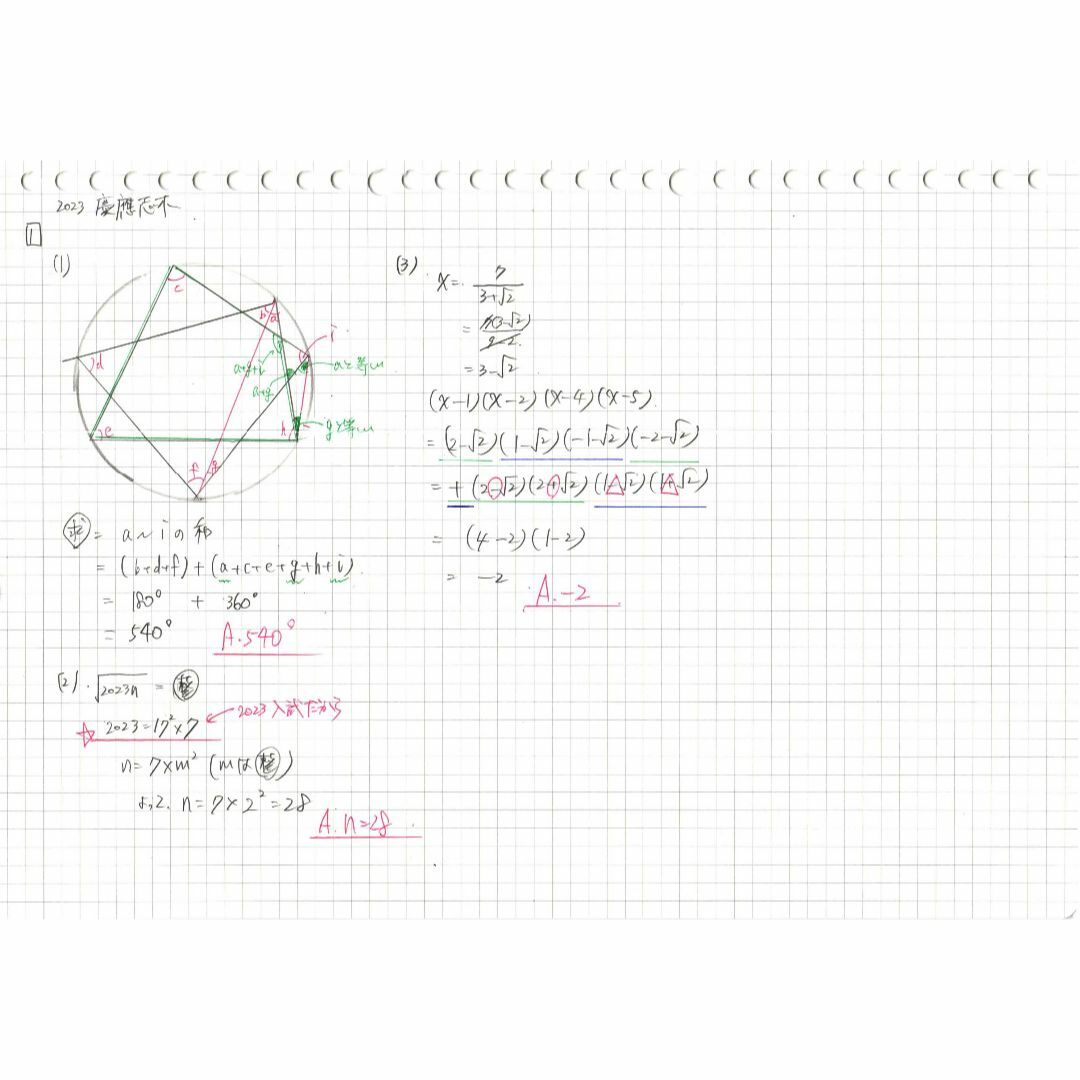 2023 慶應志木
1
(1)
c
b a
i
d
a+g+i
aと等しい
a+g
e
h
gと等しい
f g
求 = a~iの和
= (b+d+f)+(a+c+e+g+h+i)
= 180° + 360°
= 540°
A.540°
(2). √2023n = 整
☆ 2023=17²×7 ← 2023入試だから
n=7×m² (mは整)
よって. n=7×2²=28
A. n=28
(3).
x = 7/(3+√2)
= 7(3-√2)/(9-2)
= 3-√2
(x-1)(x-2)(x-4)(x-5)
= (2-√2)(1-√2)(-1-√2)(-2-√2)
= +(2-√2)(2+√2)(1-√2)(1+√2)
= (4-2)(1-2)
= -2
A.-2